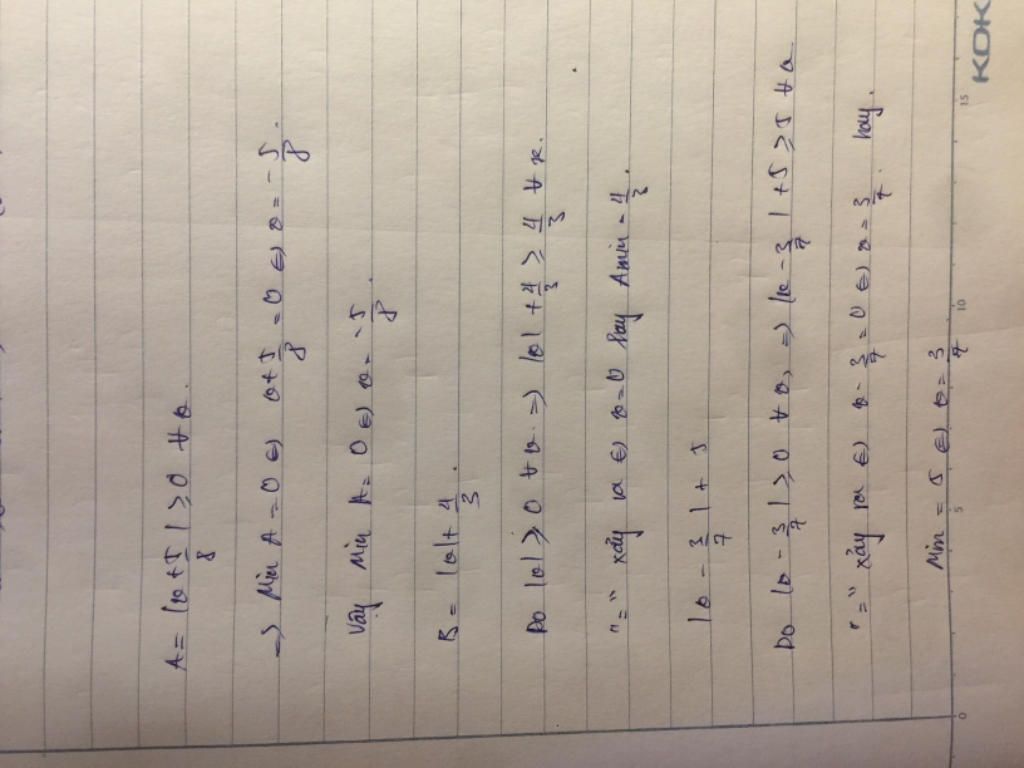 A = |x + 5/8| ≥ 0 ∀ x.
=> Min A = 0 <=> x + 5/8 = 0 <=> x = - 5/8.
Vậy Min A = 0 <=> x = - 5/8.
B = |x| + 4/3.
Do |x| ≥ 0 ∀ x. => |x| + 4/3 ≥ 4/3 ∀ x.
"=" xảy ra <=> x = 0 hay Amin = 4/3.
|x - 3/7| + 5
Do |x - 3/7| ≥ 0 ∀ x, => |x - 3/7| + 5 ≥ 5 ∀ x
"=" xảy ra <=> x - 3/7 = 0 <=> x = 3/7. hay.
Min = 5 <=> x = 3/7
0 5 10 15
KOK